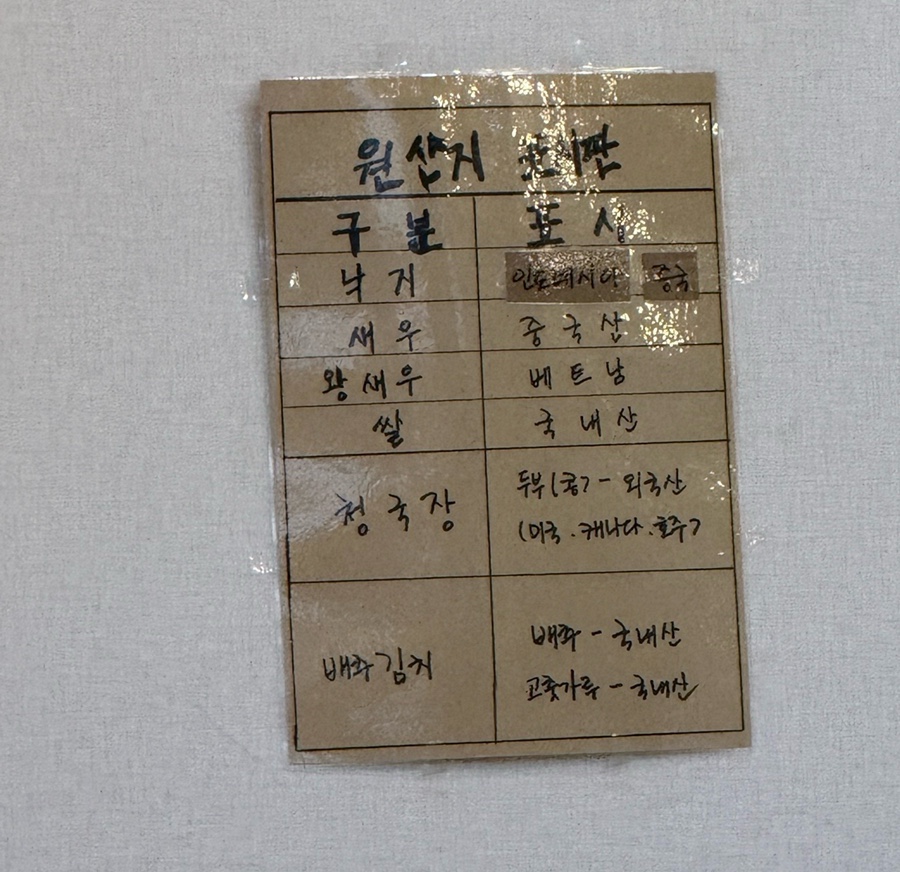 원산지 표시판
구분 표시
낙지 인도네시아 중국
새우 중국산
왕새우 베트남
쌀 국내산
청국장
두부(콩) - 외국산
(미국.캐나다.호주)
배추김치
배추 - 국내산
고춧가루 - 국내산